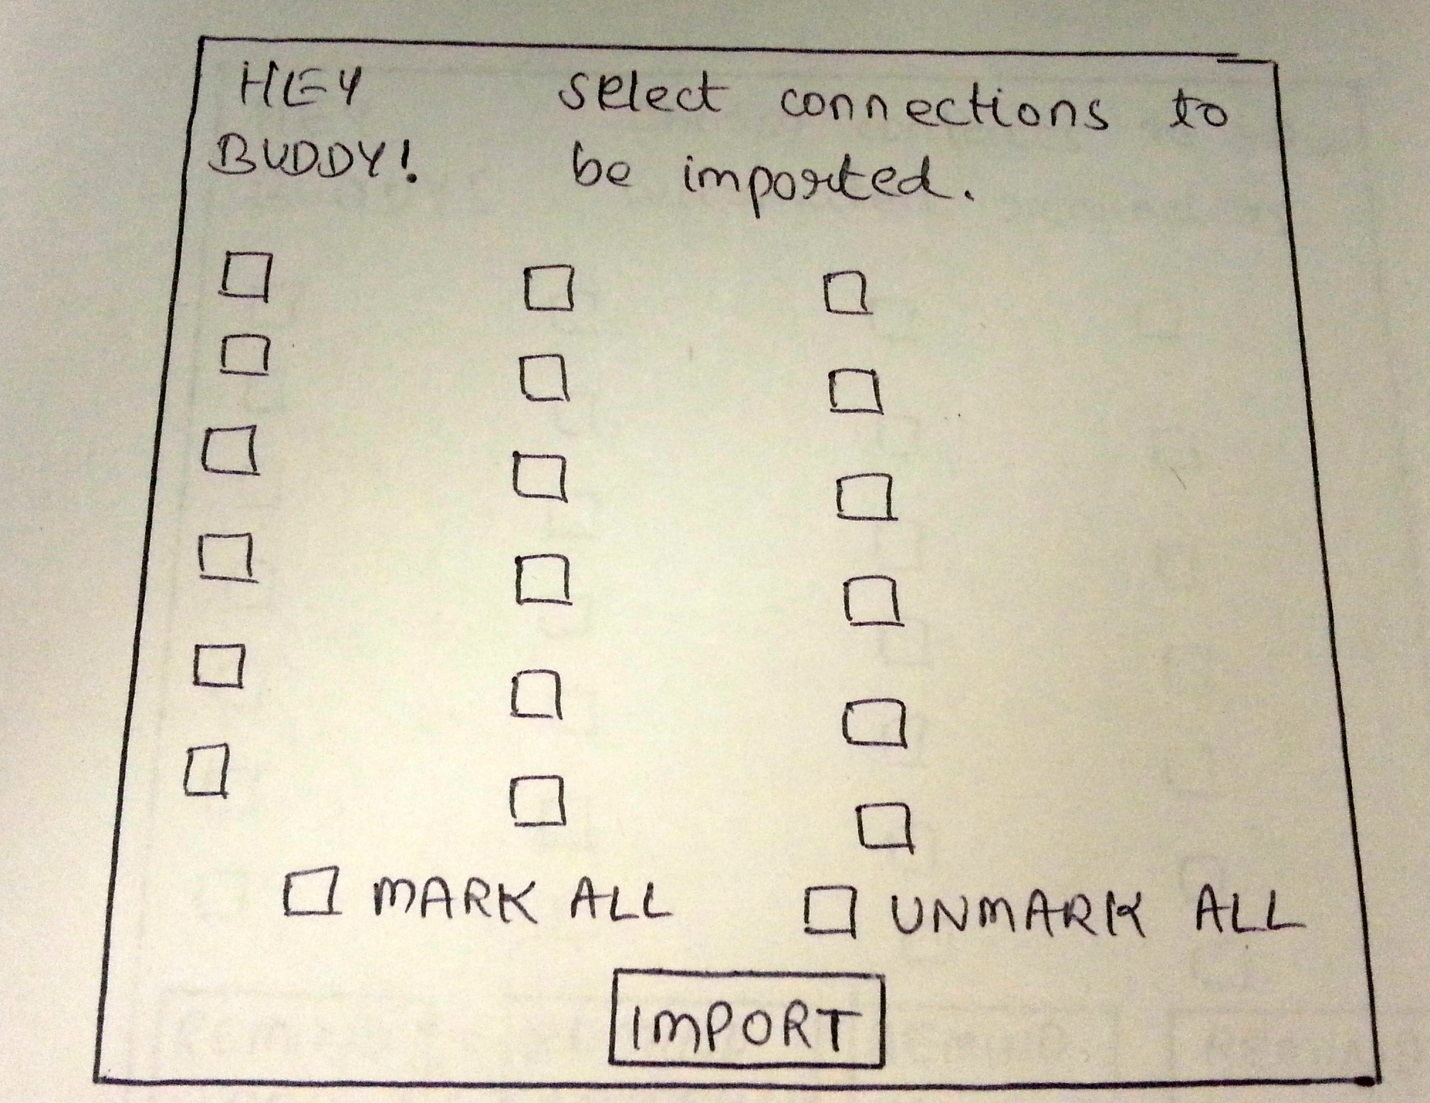 HEY
BUDDY!
select connections to
be imported.
MARK ALL
UNMARK ALL
IMPORT